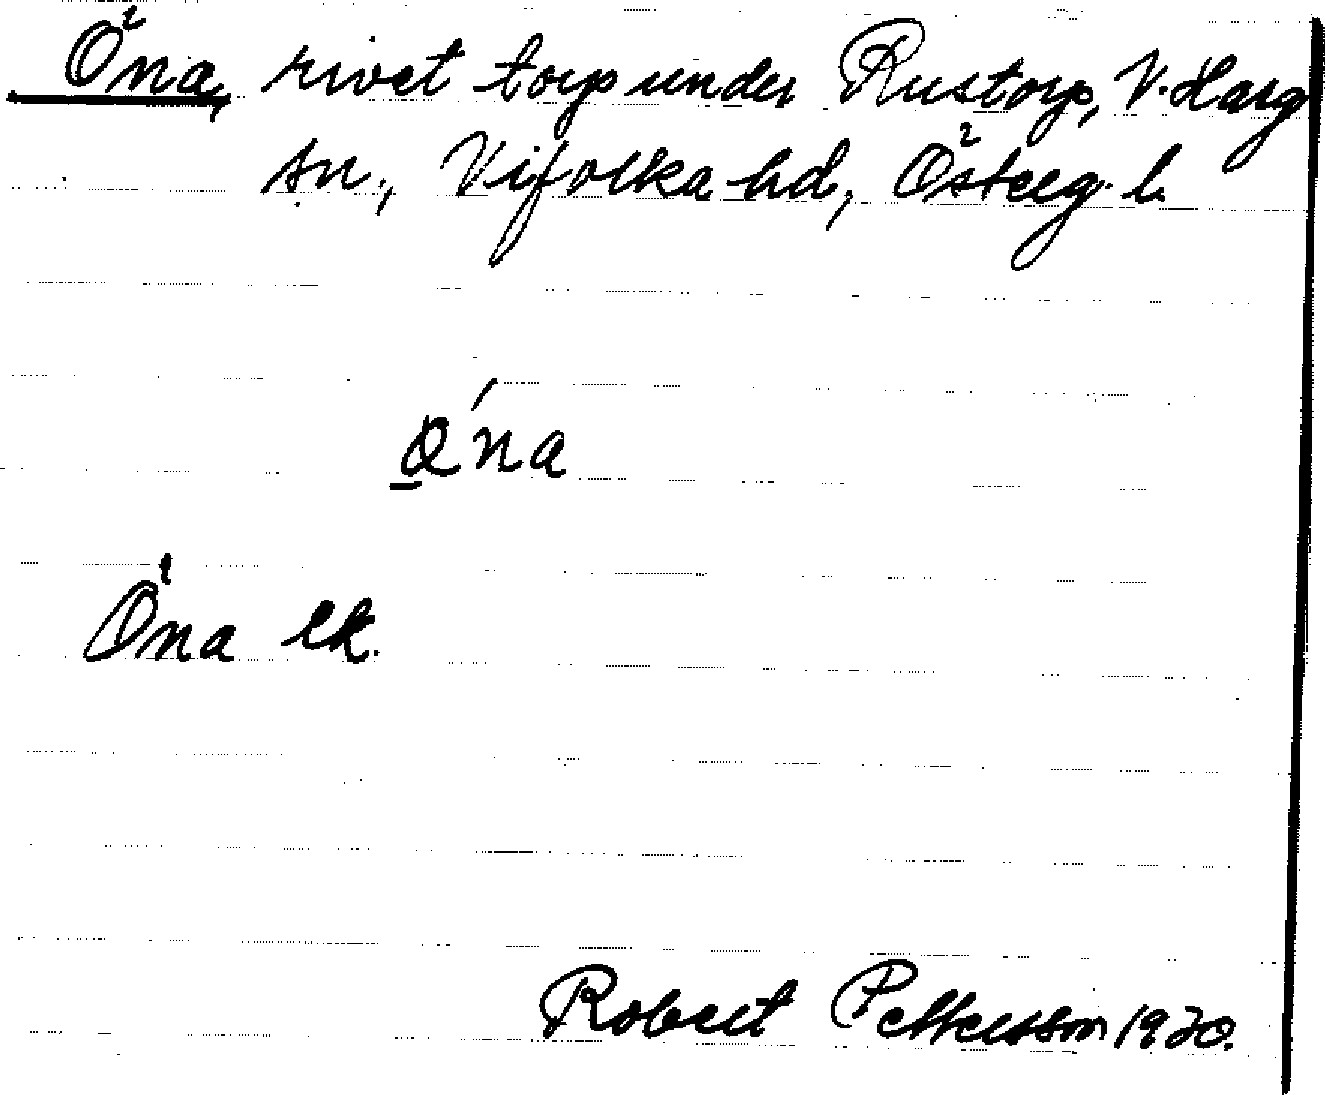 Öna, rivet torp under Rustorp, V. Harg
sn., Vifolka hd, Österg. l.
Öna ek.
Robert Pettersson 1920.